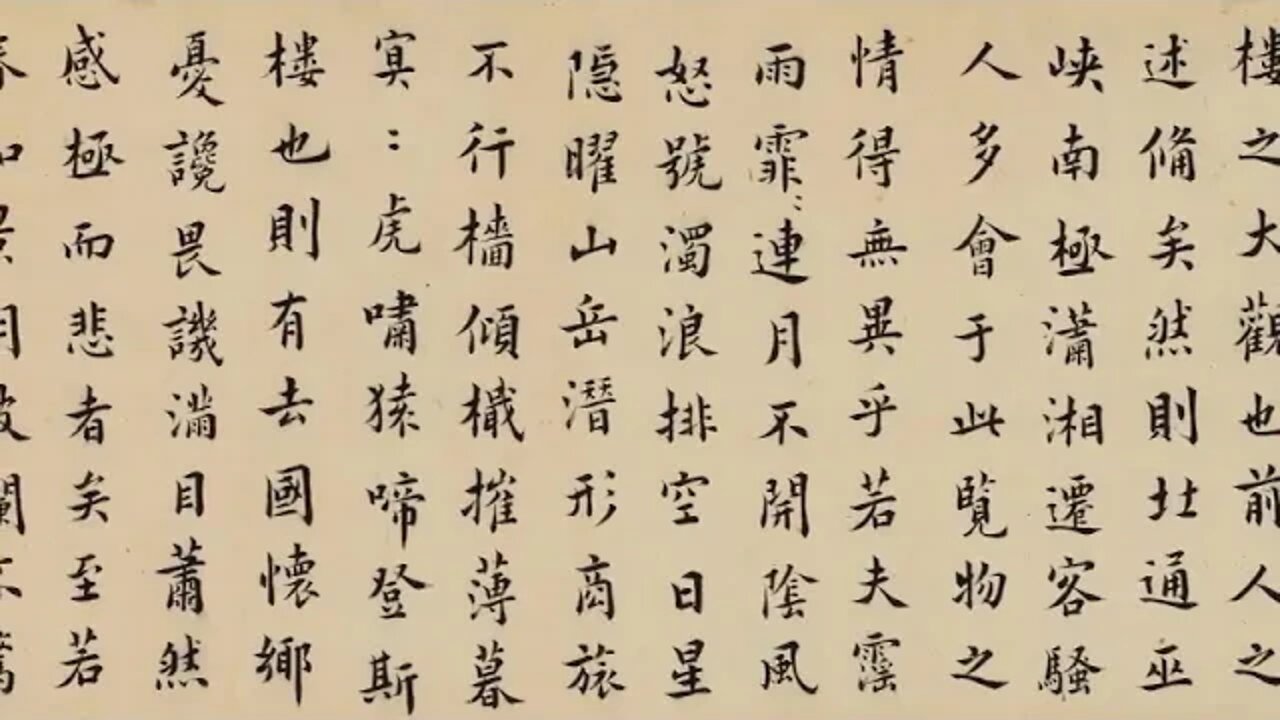 樓之大觀也前人之
述俻矣然則北通巫
峽南極瀟湘遷客騷
人多會于此覽物之
情得無異乎若夫霪
雨霏〻連月不開陰風
怒號濁浪排空日星
隱曜山岳潛形商旅
不行檣傾檝摧薄暮
冥〻虎嘯猿啼登斯
樓也則有去國懷鄉
憂讒畏譏滿目蕭然
感極而悲者矣至若
春和景明波瀾不驚